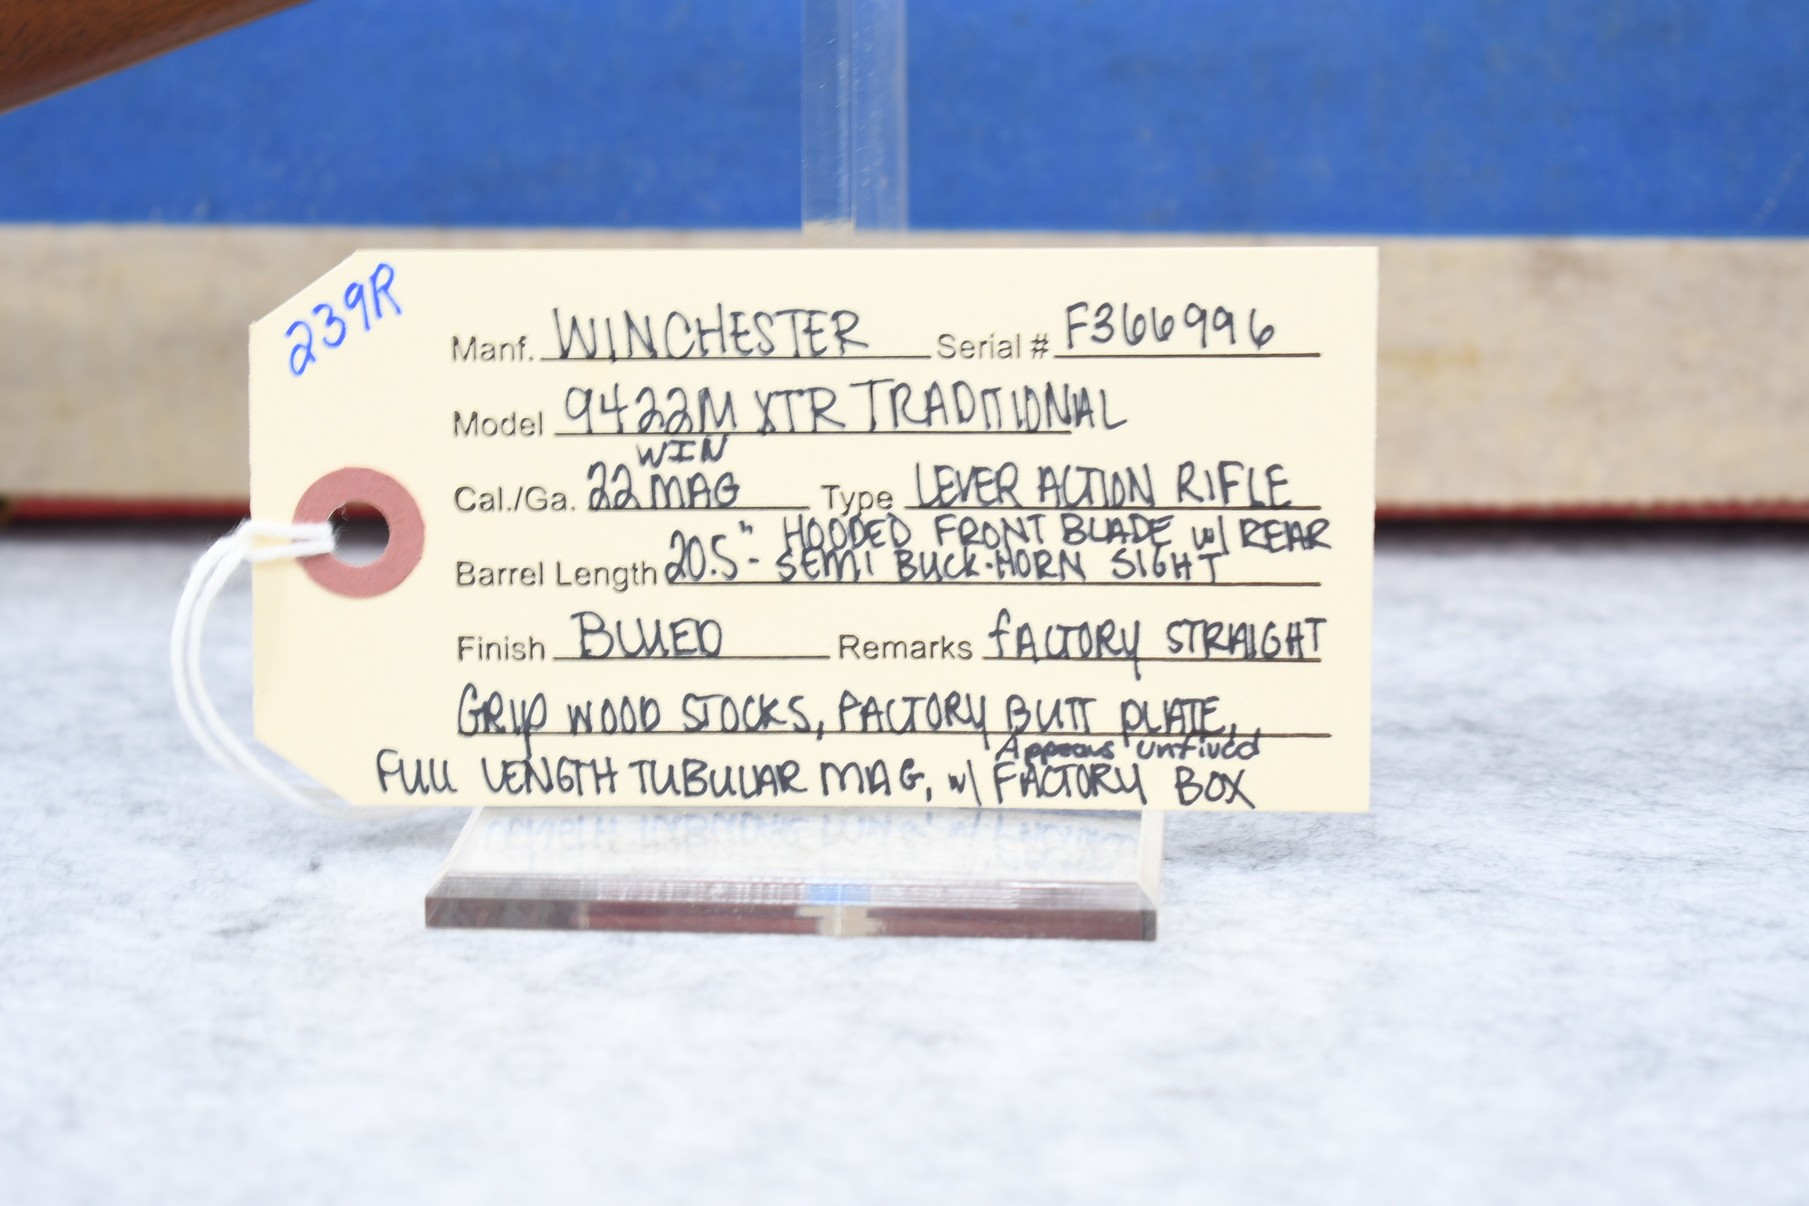 239R
Manf. WINCHESTER Serial # F366996
Model 9422M XTR TRADITIONAL
WIN
Cal./Ga. 22 MAG Type LEVER ACTION RIFLE
HOODED FRONT BLADE w/ REAR
Barrel Length 20.5" - SEMI BUCK-HORN SIGHT
Finish BLUED Remarks FACTORY STRAIGHT
GRIP WOOD STOCKS, FACTORY BUTT PLATE,
Appears unfired
FULL LENGTH TUBULAR MAG, w/ FACTORY BOX